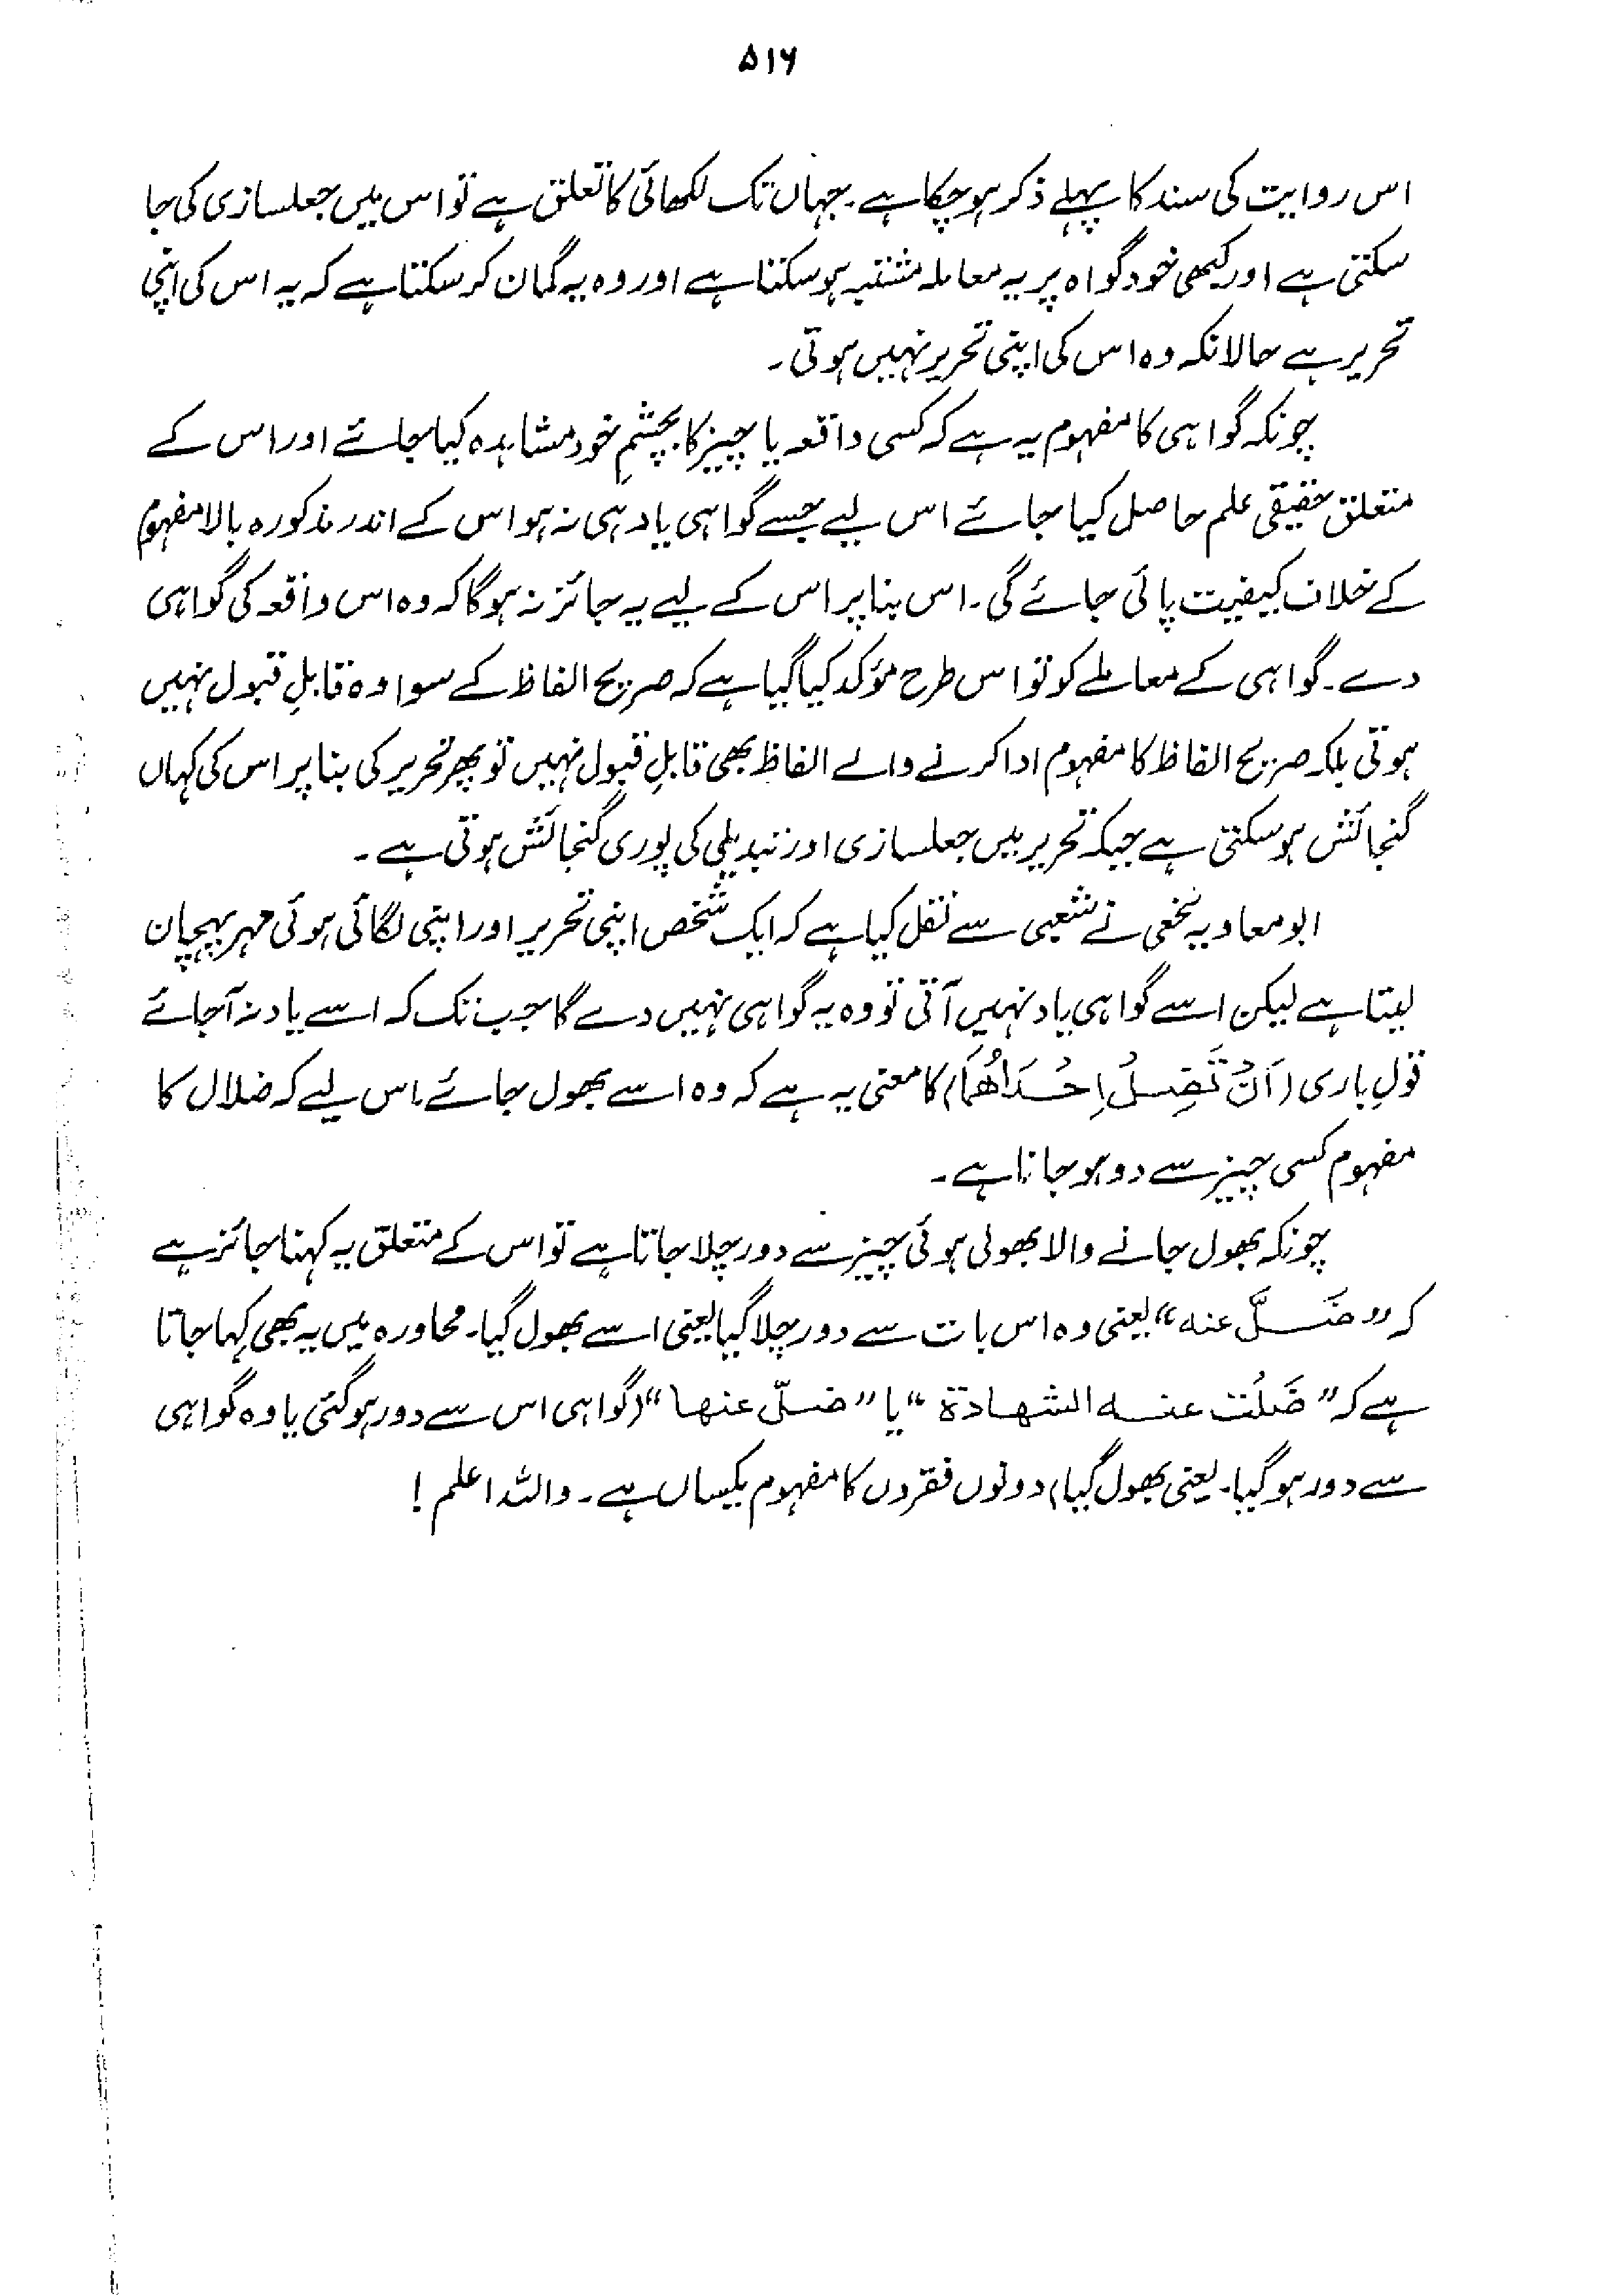 ۵۱۶
اس روایت کی سند کا پہلے ذکر ہو چکا ہے۔ جہاں تک لکھائی کا تعلق ہے تو اس میں جعلسازی کی جا
سکتی ہے اور کبھی خود گواہ پر یہ معاملہ مشتبہ ہو سکتا ہے اور وہ یہ گمان کر سکتا ہے کہ یہ اس کی اپنی
تحریر ہے حالانکہ وہ اس کی اپنی تحریر نہیں ہوتی۔
چونکہ گواہی کا مفہوم یہ ہے کہ کسی واقعہ یا چیز کا بچشمِ خود مشاہدہ کیا جائے اور اس کے
متعلق حقیقی علم حاصل کیا جائے اس لیے جسے گواہی یاد ہی نہ ہو اس کے اندر مذکورہ بالا مفہوم
کے خلاف کیفیت پائی جائے گی۔ اس بنا پر اس کے لیے یہ جائز نہ ہوگا کہ وہ اس واقعہ کی گواہی
دے۔ گواہی کے معاملے کو تو اس طرح مؤکد کیا گیا ہے کہ صریح الفاظ کے سوا وہ قابلِ قبول نہیں
ہوتی بلکہ صریح الفاظ کا مفہوم ادا کرنے والے الفاظ بھی قابلِ قبول نہیں تو پھر تحریر کی بنا پر اس کی کہاں
گنجائش ہو سکتی ہے جبکہ تحریر میں جعلسازی اور تبدیلی کی پوری گنجائش ہوتی ہے۔
ابو معاویہ نخعی نے شعبی سے نقل کیا ہے کہ ایک شخص اپنی تحریر اور اپنی لگائی ہوئی مہر پہچان
لیتا ہے لیکن اسے گواہی یاد نہیں آتی تو وہ یہ گواہی نہیں دے گا جب تک کہ اسے یاد نہ آجائے
قولِ باری (اَنْ تَضِلَّ اِحْدَاھُمَا) کا معنی یہ ہے کہ وہ اسے بھول جائے، اس لیے کہ ضلال کا
مفہوم کسی چیز سے دور ہو جانا ہے۔
چونکہ بھول جانے والا بھولی ہوئی چیز سے دور چلا جاتا ہے تو اس کے متعلق یہ کہنا جائز ہے
کہ ”ضَلَّ عنہ“ یعنی وہ اس بات سے دور چلا گیا یعنی اسے بھول گیا۔ محاورہ میں یہ بھی کہا جاتا
ہے کہ ”ضَلَّت عنہ الشھادۃ“ یا ”ضلّ عنھا“ (گواہی اس سے دور ہو گئی یا وہ گواہی
سے دور ہو گیا۔ یعنی بھول گیا) دونوں فقروں کا مفہوم یکساں ہے۔ واللہ اعلم !